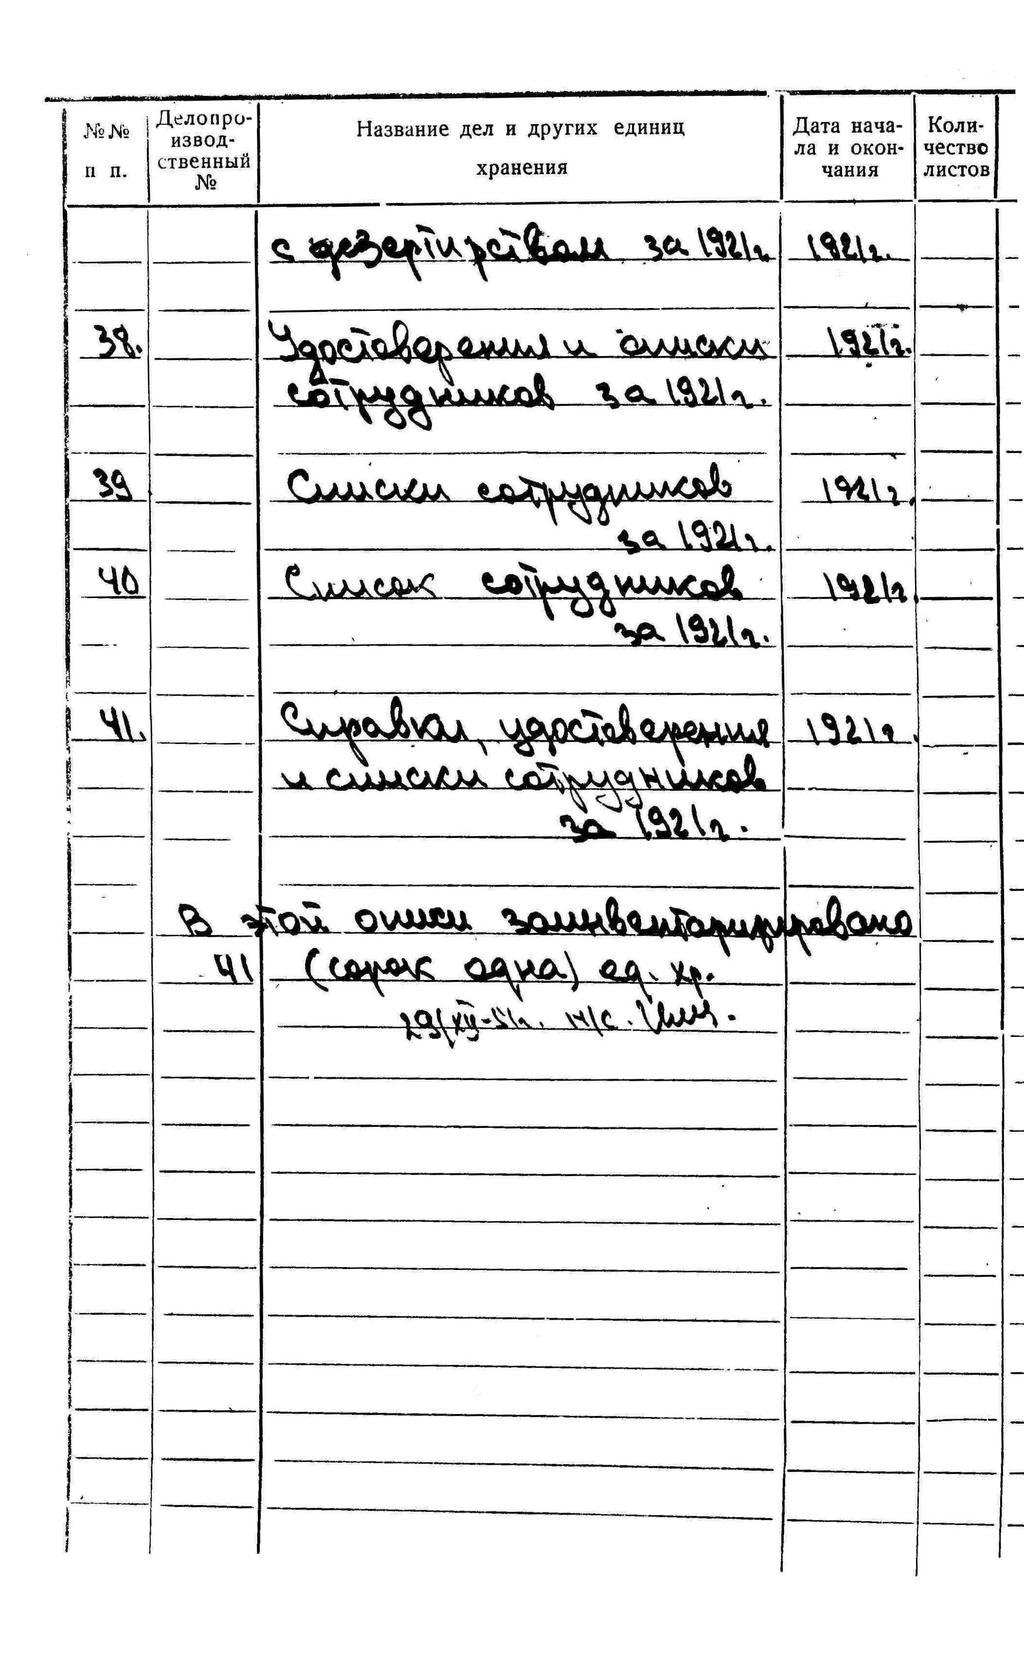 №№ п п.
Делопроизводственный №
Название дел и других единиц хранения
Дата начала и окончания
Количество листов
с дезертирством за 1921г. 1921г.
38. Удостоверения и списки 1921г.
сотрудников за 1921г.
39 Списки сотрудников 1921г.
за 1921г.
40 Список сотрудников 1921г.
за 1921г.
41. Справки, удостоверения 1921г.
и списки сотрудников
за 1921г.
В этой описи заинвентаризировано
41 (сорок одна) ед. хр.
29/XII-51г. м/с.